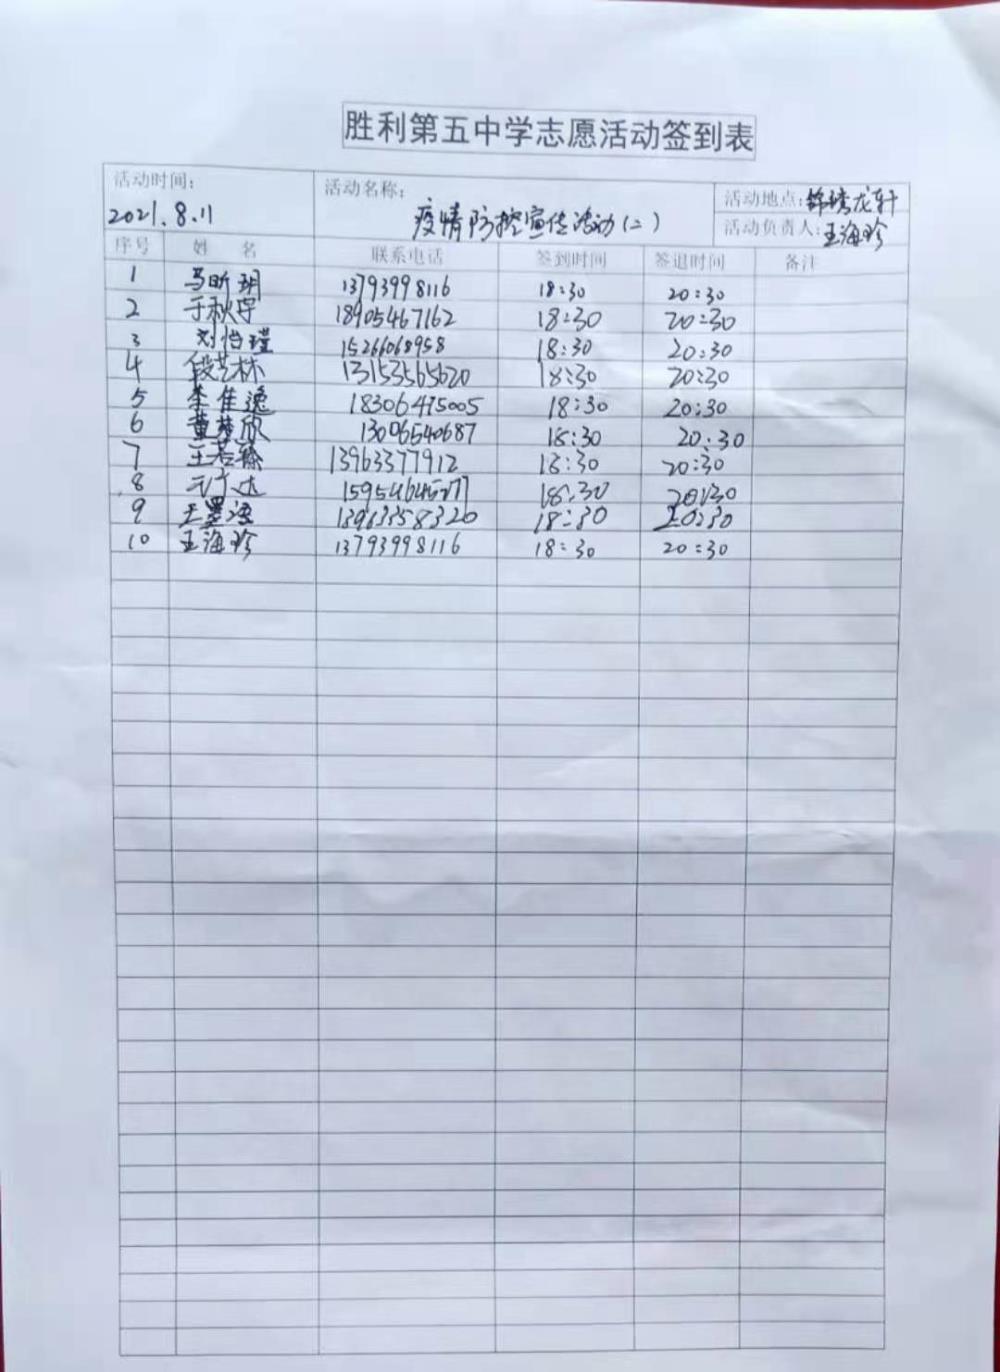 胜利第五中学志愿活动签到表
活动时间: 2021.8.11
活动名称: 疫情防控宣传活动(二)
活动地点: 锦绣龙轩
活动负责人: 王海珍
序号 姓名 联系电话 签到时间 签退时间 备注
1 马昕玥 13793998116 18:30 20:30
2 于秋宇 18905467162 18:30 20:30
3 刘怡瑾 15266068958 18:30 20:30
4 段艺林 13153565620 18:30 20:30
5 李佳逸 18306475005 18:30 20:30
6 董梦欣 13006540687 18:30 20:30
7 王若臻 13963377912 18:30 20:30
8 18:30 20:30
9 王墨涵 13963358320 18:30 20:30
10 王海珍 13793998116 18:30 20:30